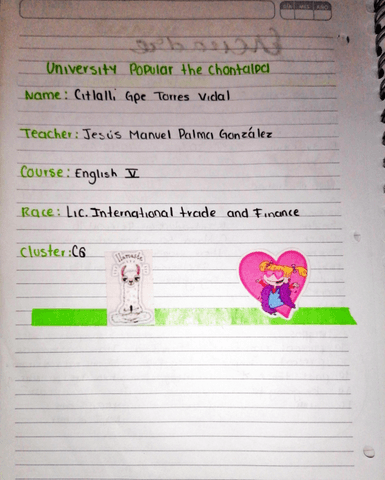 University Popular the Chontalpa
Name: Citlalli Gpe Torres Vidal
Teacher: Jesús Manuel Palma González
Course: English V
Race: Lic. International trade and Finance
Cluster: C6